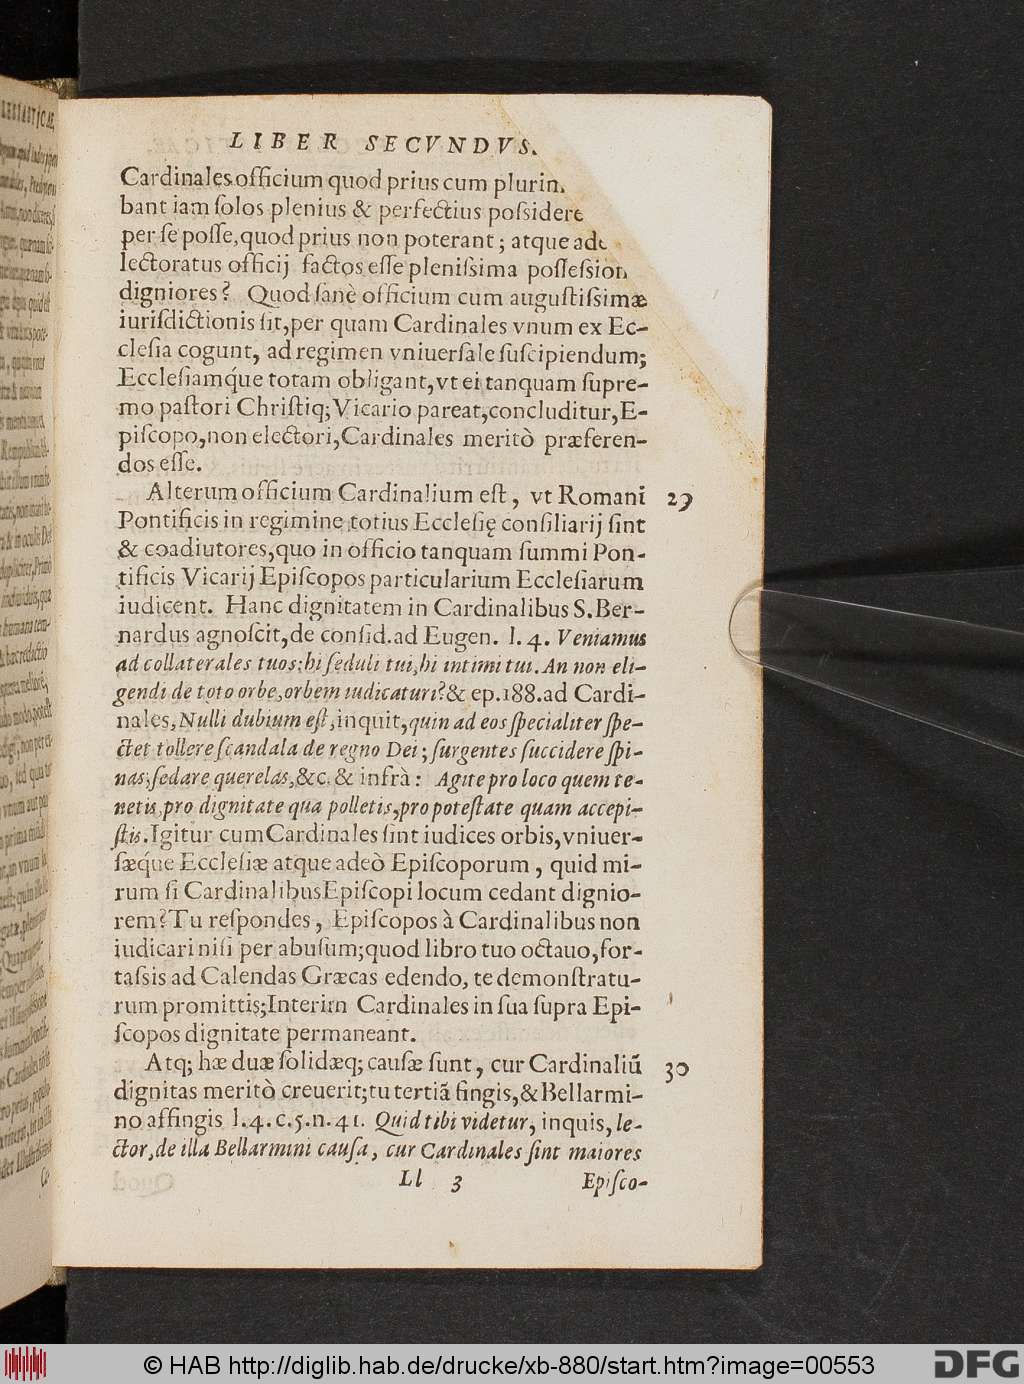 LIBER SECVNDVS.
Cardinales officium quod prius cum plurin
bant iam ſolos plenius & perfectius poſsidere
per ſe poſſe, quod prius non poterant; atque ade
lectoratus officij factos eſſe pleniſsima poſſeſsion
digniores? Quod ſanè officium cum auguſtiſsimæ
iuriſdictionis ſit, per quam Cardinales vnum ex Ec-
cleſia cogunt, ad regimen vniuerſale ſuſcipiendum;
Eccleſiamq́ue totam obligant, vt ei tanquam ſupre-
mo paſtori Chriſtiq; Vicario pareat, concluditur, E-
piſcopo, non electori, Cardinales meritò præferen-
dos eſſe.
Alterum officium Cardinalium eſt, vt Romani 29
Pontificis in regimine totius Eccleſię conſiliarij ſint
& coadiutores, quo in officio tanquam ſummi Pon-
tificis Vicarij Epiſcopos particularium Eccleſiarum
iudicent. Hanc dignitatem in Cardinalibus S. Ber-
nardus agnoſcit, de conſid. ad Eugen. l. 4. Veniamus
ad collaterales tuos; hi ſeduli tui, hi intimi tui. An non eli-
gendi de toto orbe, orbem iudicaturi? & ep. 188. ad Cardi-
nales, Nulli dubium eſt, inquit, quin ad eos ſpecialiter ſpe-
ctet tollere ſcandala de regno Dei; ſurgentes ſuccidere ſpi-
nas; ſedare querelas, &c. & infrà: Agite pro loco quem te-
netis, pro dignitate qua polletis, pro poteſtate quam accepi-
ſtis. Igitur cum Cardinales ſint iudices orbis, vniuer-
ſæq́ue Eccleſiæ atque adeò Epiſcoporum, quid mi-
rum ſi Cardinalibus Epiſcopi locum cedant dignio-
rem? Tu reſpondes, Epiſcopos à Cardinalibus non
iudicari niſi per abuſum; quod libro tuo octauo, for-
taſsis ad Calendas Græcas edendo, te demonſtratu-
rum promittis; Interim Cardinales in ſua ſupra Epi-
ſcopos dignitate permaneant.
Atq; hæ duæ ſolidæq; cauſæ ſunt, cur Cardinaliū 30
dignitas meritò creuerit; tu tertiā fingis, & Bellarmi-
no affingis l. 4. c. 5. n. 41. Quid tibi videtur, inquis, le-
ctor, de illa Bellarmini cauſa, cur Cardinales ſint maiores
Ll 3 Epiſco-
© HAB http://diglib.hab.de/drucke/xb-880/start.htm?image=00553
DFG